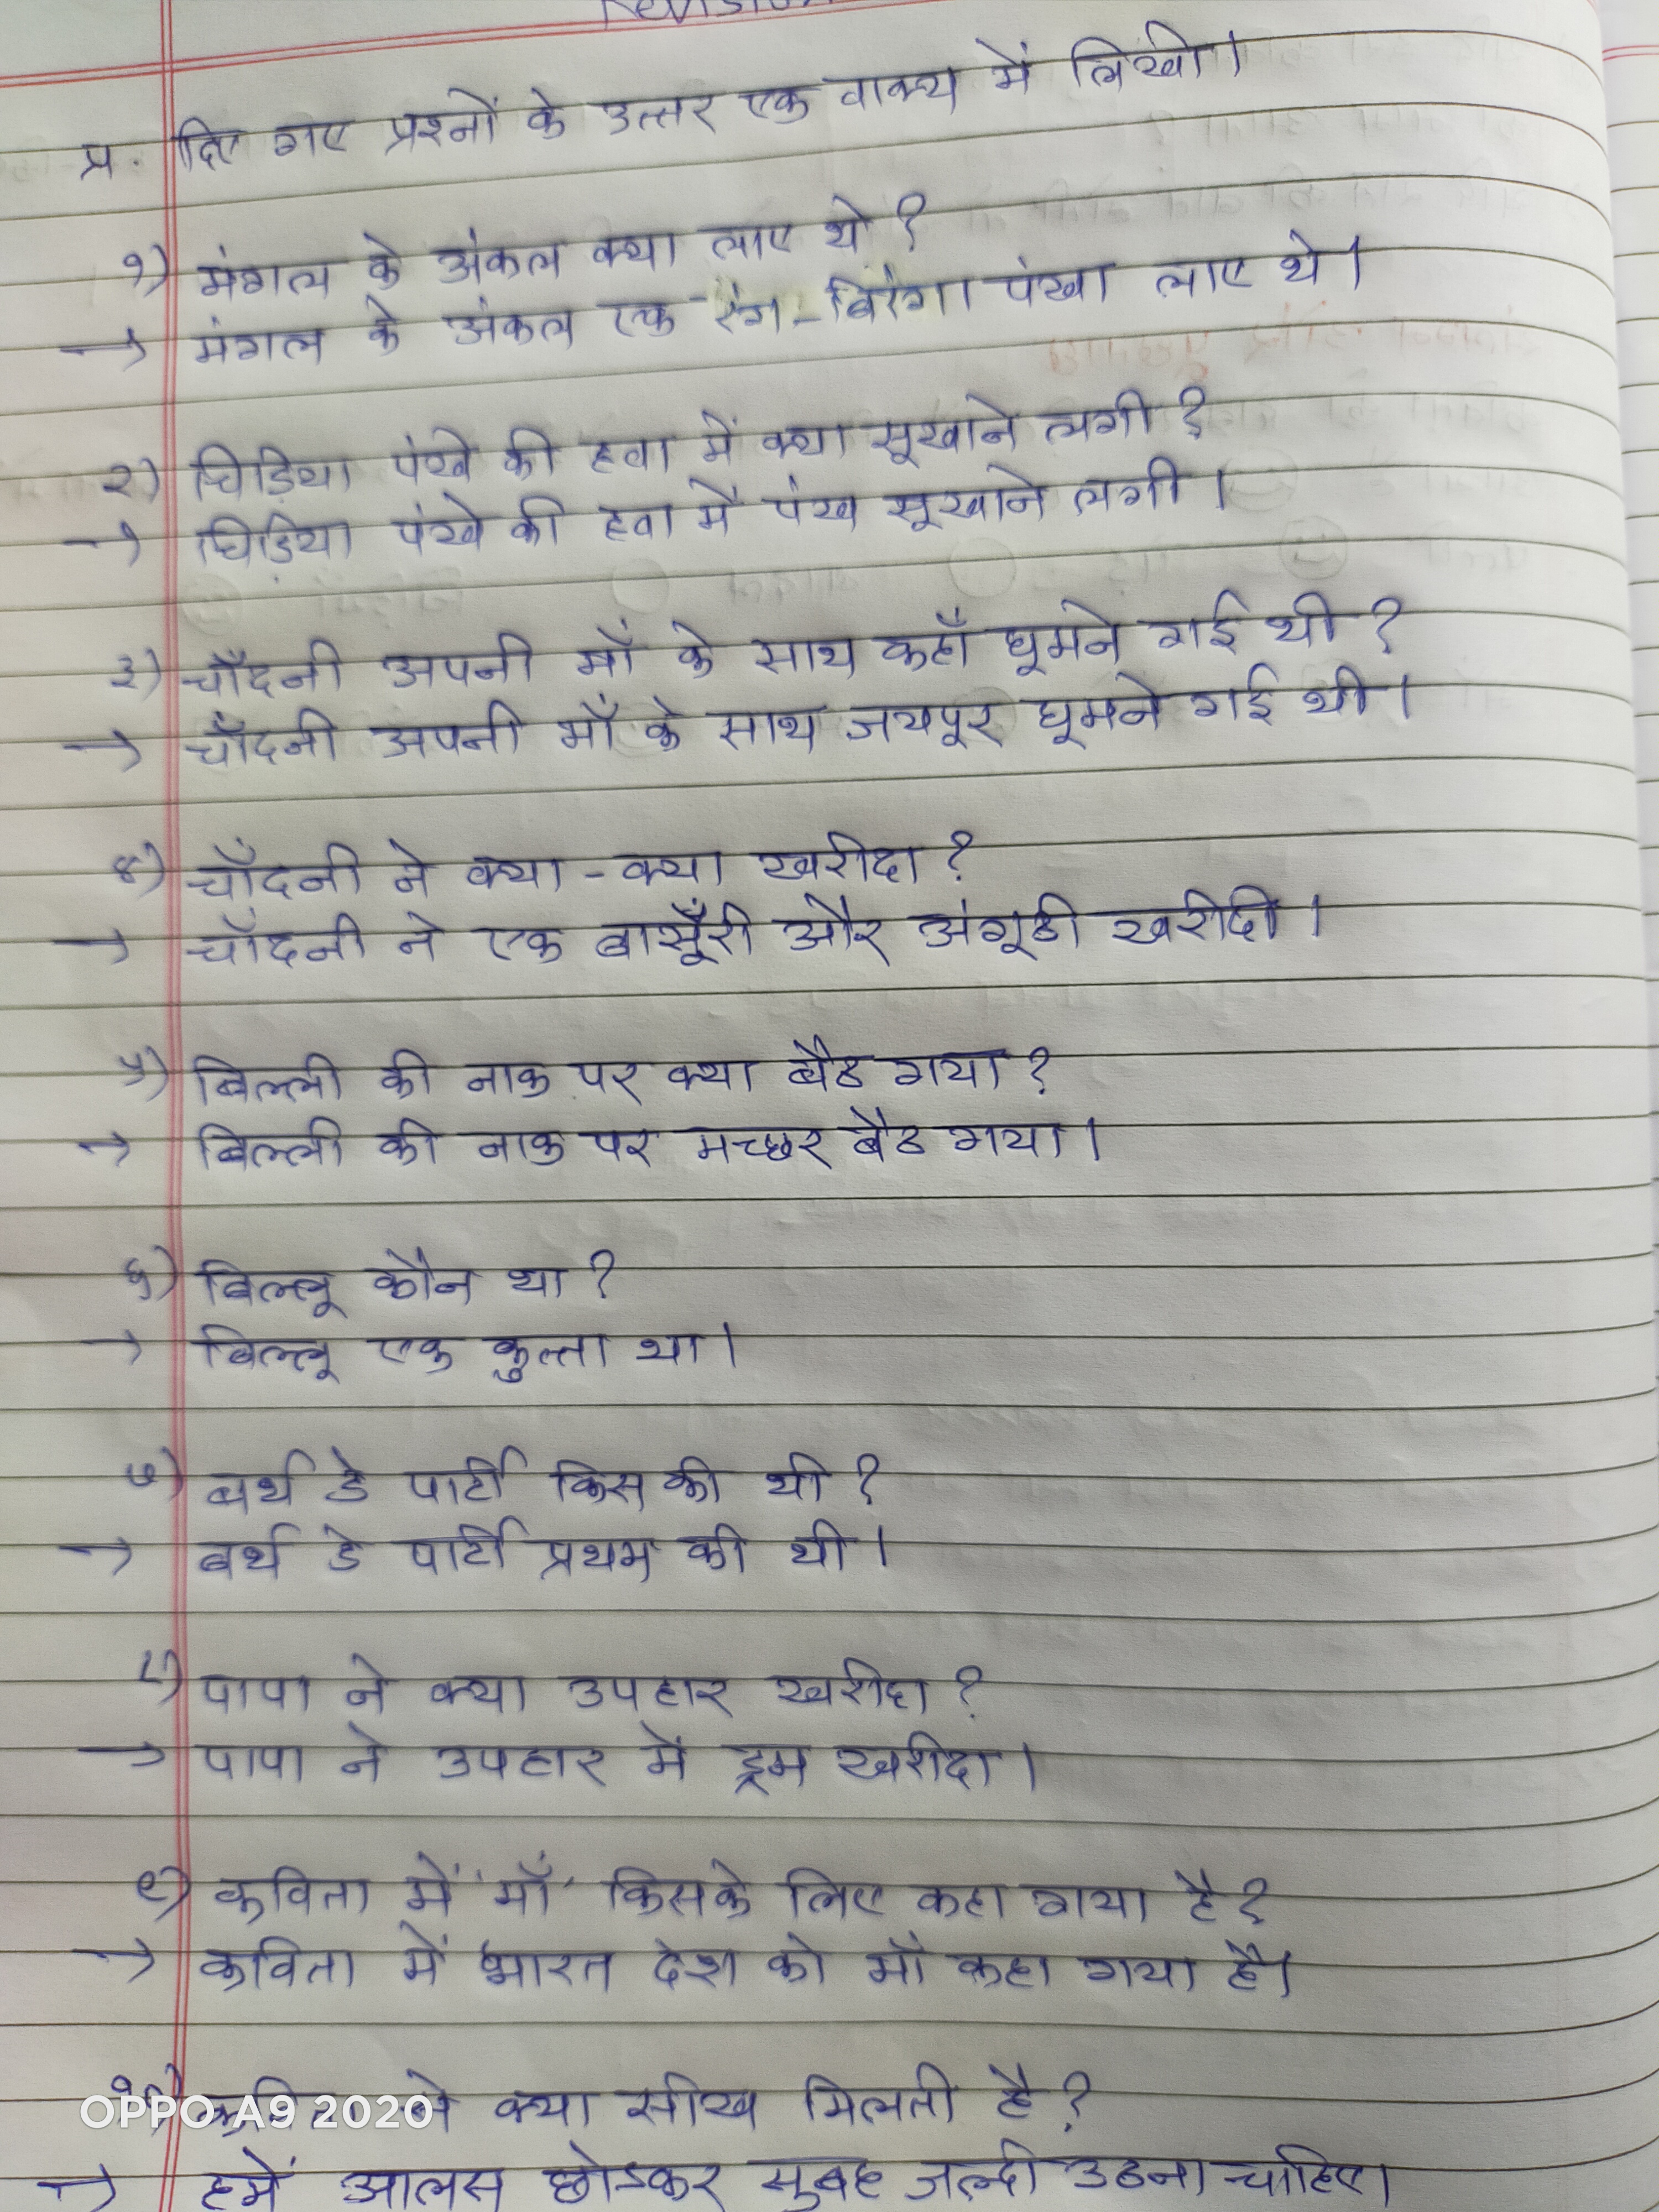 REVISION
प्र. दिए गए प्रश्नों के उत्तर एक वाक्य में लिखो।
१) मंगल के अंकल क्या लाए थे?
→ मंगल के अंकल एक रंग-बिरंगा पंखा लाए थे।
२) चिड़िया पंखे की हवा में क्या सूखाने लगी?
→ चिड़िया पंखे की हवा में पंख सूखाने लगी।
३) चाँदनी अपनी माँ के साथ कहाँ घूमने गई थी?
→ चाँदनी अपनी माँ के साथ जयपूर घूमने गई थी।
४) चाँदनी ने क्या-क्या खरीदा?
→ चाँदनी ने एक बासूँरी और अंगूठी खरीदी।
५) बिल्ली की नाक पर क्या बैठ गया?
→ बिल्ली की नाक पर मच्छर बैठ गया।
६) बिल्लू कौन था?
→ बिल्लू एक कुत्ता था।
७) बर्थ डे पार्टी किस की थी?
→ बर्थ डे पार्टी प्रथम की थी।
८) पापा ने क्या उपहार खरीदा?
→ पापा ने उपहार में ड्रम खरीदा।
९) कविता में 'माँ' किसके लिए कहा गया है?
→ कविता में भारत देश को माँ कहा गया है।
१०) कविता से क्या सीख मिलती है?
→ हमें आलस छोडकर सुबह जल्दी उठना चाहिए।
OPPO A9 2020